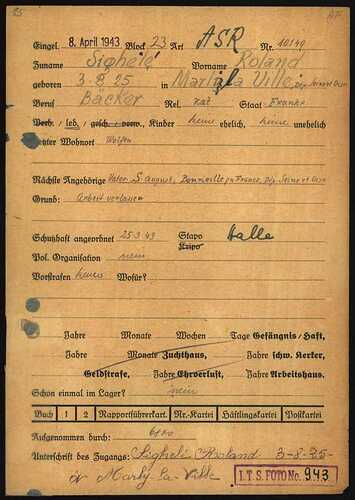 Eingel. 8. April 1943 Block 23 Art ASR Nr. 10149
Zuname Sighelé Vorname Roland
geboren 3-8-25 in Marly la Ville,
Beruf Bäcker Rel. kat. Staat Frankr.
Verh., led., gesch., verw., Kinder keine ehelich, keine unehelich
Letzter Wohnort Wolfen
Nächste Angehörige Vater S. August, Seine et Oise
Grund: Arbeit verlassen
Schutzhaft angeordnet 25.3.43 Stapo Halle
Kripo
Pol. Organisation nein
Vorstrafen keine Wofür?
Jahre Monate Wochen Tage Gefängnis/Haft,
Jahre Monate Zuchthaus, Jahre schw. Kerker,
Geldstrafe, Jahre Ehrverlust, Jahre Arbeitshaus.
Schon einmal im Lager? nein
Buch 1 2 Rapportführerkart. Nr.-Kartei Häftlingskartei Postkartei
Aufgenommen durch:
Unterschrift des Zugangs: Sighelé Roland 3-8-25-
à Marly-La-Ville
I.T.S. FOTO No. 943